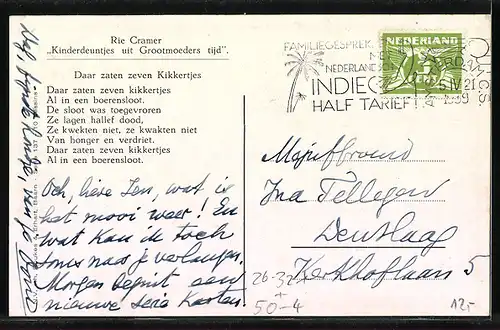 Rie Cramer
„Kinderdeuntjes uit Grootmoeders tijd".
Daar zaten zeven Kikkertjes
Daar zaten zeven kikkertjes
Al in een boerensloot.
De sloot was toegevroren
Ze lagen hallef dood,
Ze kwekten niet, ze kwakten niet
Van honger en verdriet.
Daar zaten zeven kikkertjes
Al in een boerensloot.
Och, lieve Ien, wat is
het mooi weer! En
wat kan ik toch
soms naar je verlangen.
Morgen begint een
nieuwe serie Kaarten.
FAMILIEGESPREK
NEDERLAND
INDIË
HALF TARIEF
5 IV 21
1939
NEDERLAND
Mejuffrouw
Ina Tellegen
Den Haag
Kerkhoflaan 5
26-32
50-4
12,-